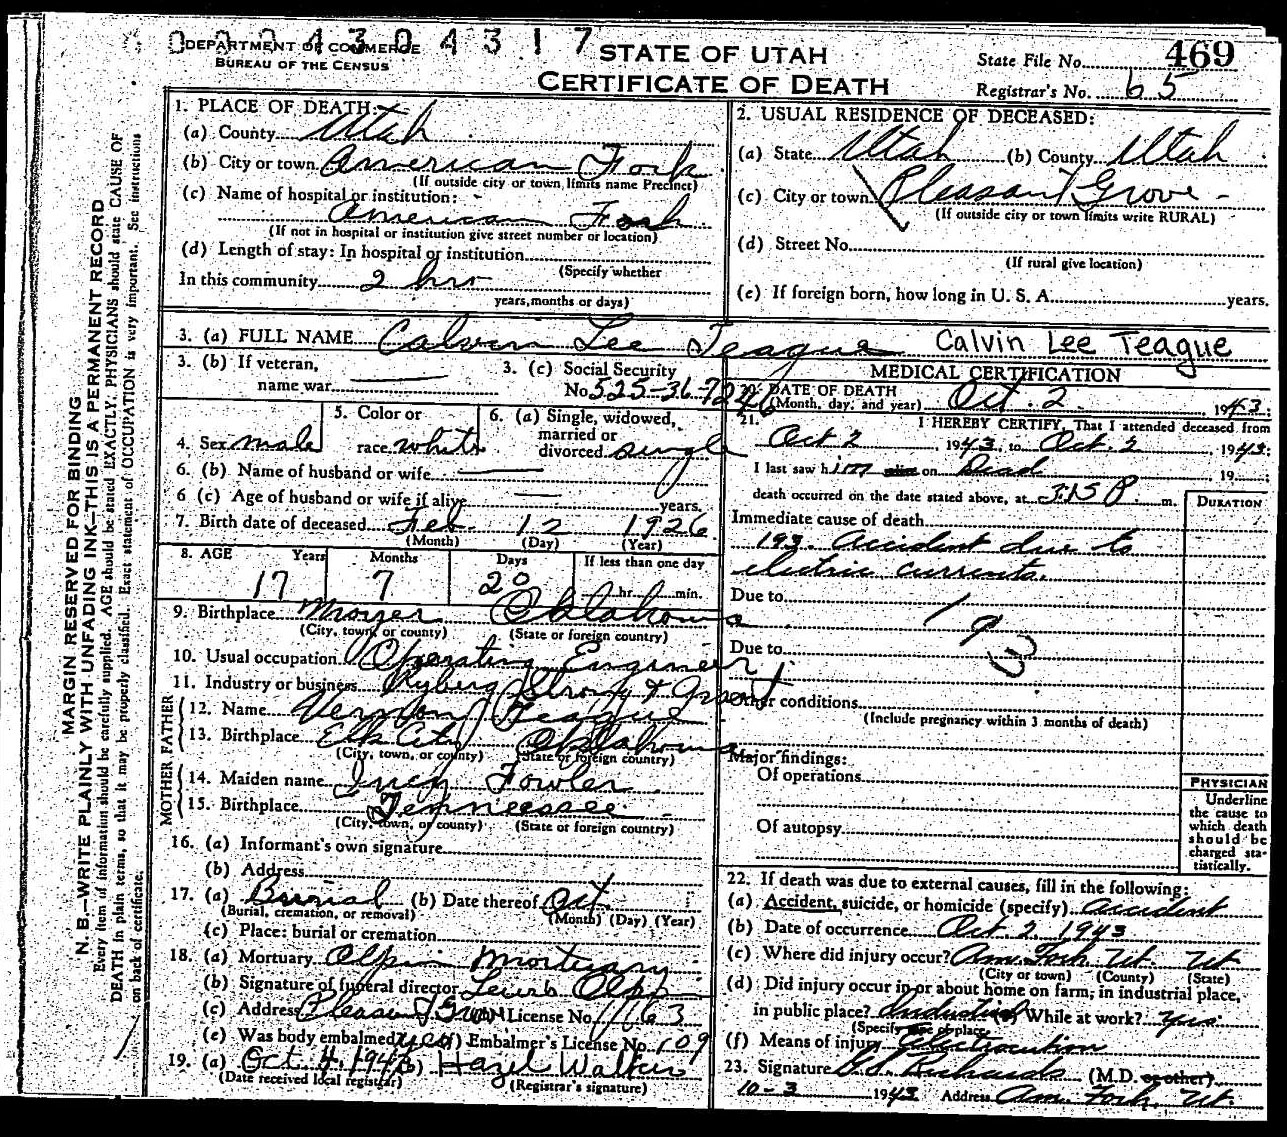 0004304317
DEPARTMENT OF COMMERCE
BUREAU OF THE CENSUS
STATE OF UTAH
CERTIFICATE OF DEATH
State File No. 469
Registrar's No. 65
1. PLACE OF DEATH:
(a) County Utah
(b) City or town American Fork
(If outside city or town limits name Precinct)
(c) Name of hospital or institution:
American Fork
(If not in hospital or institution give street number or location)
(d) Length of stay: In hospital or institution
(Specify whether
In this community 2 hrs
years, months or days)
2. USUAL RESIDENCE OF DECEASED:
(a) State Utah (b) County Utah
(c) City or town Pleasant Grove
(If outside city or town limits write RURAL)
(d) Street No.
(If rural give location)
(e) If foreign born, how long in U. S. A. years.
3. (a) FULL NAME Calvin Lee Teague Calvin Lee Teague
3. (b) If veteran, name war
3. (c) Social Security No. 525-36-7246
4. Sex male
5. Color or race white
6. (a) Single, widowed, married or divorced single
6. (b) Name of husband or wife
6 (c) Age of husband or wife if alive years.
7. Birth date of deceased Feb 12 1926
(Month) (Day) (Year)
8. AGE Years Months Days If less than one day
17 7 20 hr. min.
9. Birthplace Oklahoma
(City, town, or county) (State or foreign country)
10. Usual occupation Operating Engineer
11. Industry or business Ryberg Strong & Grant
FATHER
12. Name Vernon Teague
13. Birthplace Elk City Oklahoma
(City, town, or county) (State or foreign country)
MOTHER
14. Maiden name Fowler
15. Birthplace Tennessee
(City, town, or county) (State or foreign country)
16. (a) Informant's own signature
(b) Address
17. (a) Burial (b) Date thereof Oct
(Burial, cremation, or removal) (Month) (Day) (Year)
(c) Place: burial or cremation
18. (a) Mortuary Olpin Mortuary
(b) Signature of funeral director
(c) Address Pleasant Grove License No. 1163
(e) Was body embalmed yes (f) Embalmer's License No. 109
19. (a) Oct 4, 1943 (b) Hazel Walker
(Date received local registrar) (Registrar's signature)
MEDICAL CERTIFICATION
20. DATE OF DEATH
(Month, day, and year) Oct. 2 1943
21. I HEREBY CERTIFY, That I attended deceased from
Oct 2 1943, to Oct. 2 1943;
I last saw him alive on Dead 19
death occurred on the date stated above, at 3:15 P. m.
DURATION
Immediate cause of death
193. Accident due to
electric currents.
Due to
193
Due to
Other conditions
(Include pregnancy within 3 months of death)
Major findings:
Of operations
Of autopsy
PHYSICIAN
Underline
the cause to
which death
should be
charged sta-
tistically.
22. If death was due to external causes, fill in the following:
(a) Accident, suicide, or homicide (specify) accident
(b) Date of occurrence Oct 2 1943
(c) Where did injury occur? Am. Fork Ut. Ut
(City or town) (County) (State)
(d) Did injury occur in or about home on farm, in industrial place,
in public place? Industrial (e) While at work? yes
(Specify type of place)
(f) Means of injury Electrocution
23. Signature Richards (M.D. or other)
10-3 1943 Address Am. Fork, Ut.
MARGIN RESERVED FOR BINDING
N. B.—WRITE PLAINLY WITH UNFADING INK—THIS IS A PERMANENT RECORD
Every item of information should be carefully supplied. AGE should be stated EXACTLY. PHYSICIANS should state CAUSE OF
DEATH in plain terms, so that it may be properly classified. Exact statement of OCCUPATION is very important. See instructions
on back of certificate.